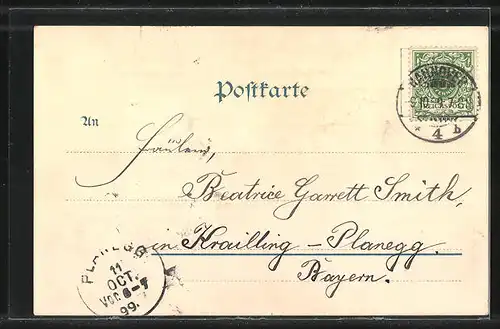 HANNOVER
REICHSPOST
* 4 b
Postkarte
An
Fräulein,
Beatrice Garrett Smith,
in Krailling - Planegg.
Bayern.
PLANEGG
11
OCT.
VOR. 6-7
99.